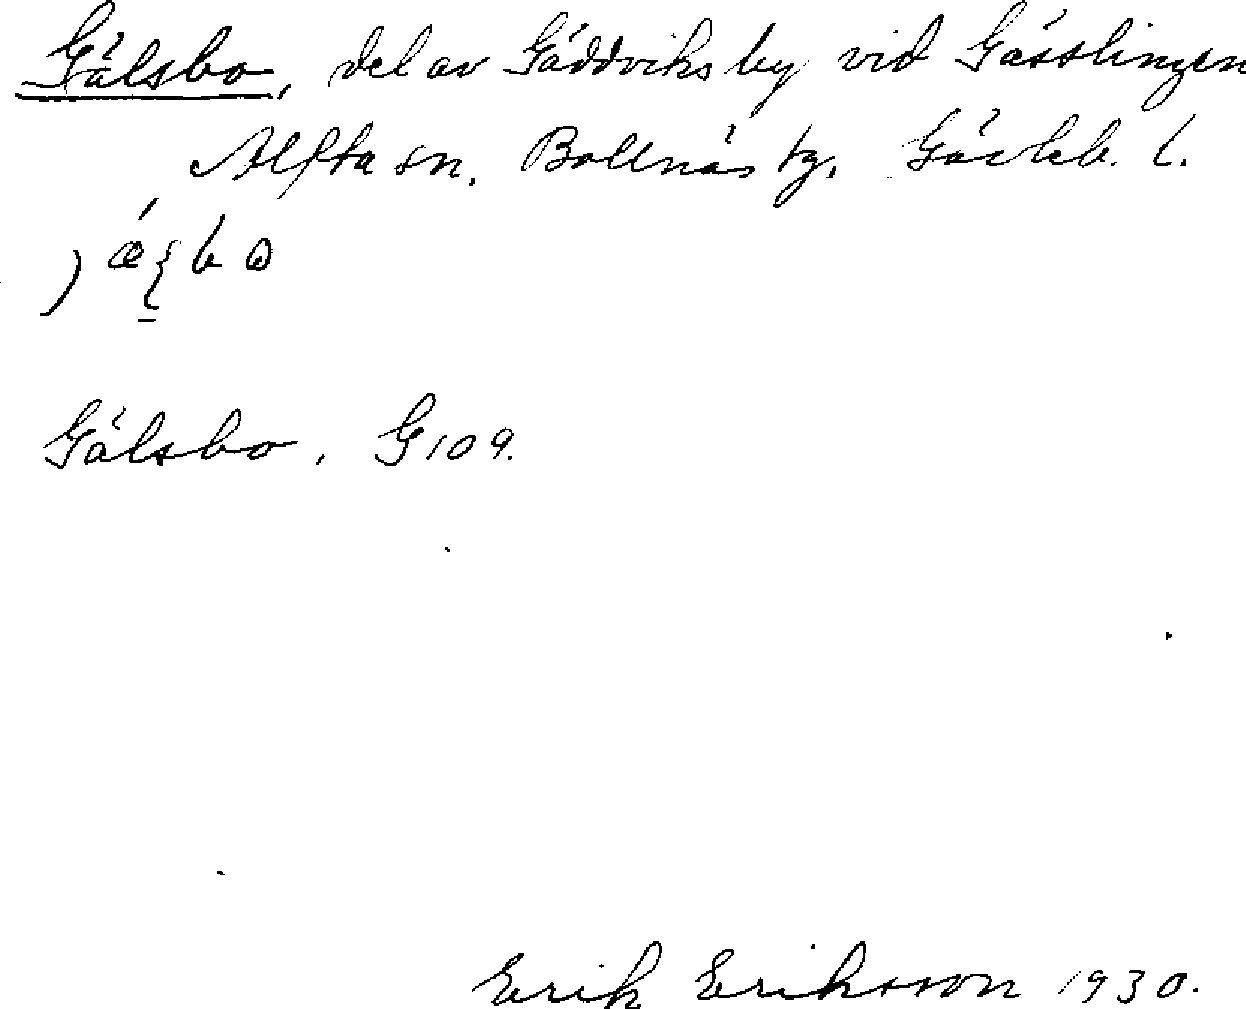 Gälsbo, del av Gäddviks by vid Gässlingen
Alfta sn. Bollnäs tg. Gävleb. l.
Gälsbo. G109.
Erik Eriksson 1930.